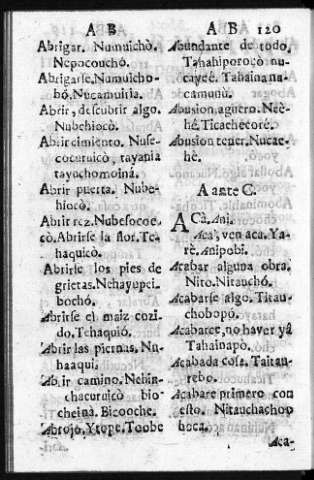 A B
Abrigar. Numuichò.
Nepocouchó.
Abrigarse. Numuicho-
bó. Nucamuihia.
Abrir, descubrir algo.
Nubehiocò.
Abrir cimiento. Nuse-
cocuruicò, tayania
tayuchomoinà.
Abrir puerta. Nube-
hiocò.
Abrir rez. Nubesocoe.
cò. Abrirse la flor. Te-
haquicò.
Abrirse los pies de
grietas. Nehayupei.
bochó.
Abrirse el maiz cozi-
do. Tehaquiò.
Abrir las piernas. Nu-
haaqui.
Abrir camino.
chacuruicò bio-
cheina. Bicooche.
Abrojo. Ytope. Toobe
A B 120
Abundante de todo.
Tahahiporocò nu-
cayeé. Tahaina na-
camunù.
Abusion, aguero. Neè-
hé. Ticachecoré.
Abusion tener. Nucae-
hè.
A ante C.
ACà. Ani.
Aca, ven aca. Ya-
rè. Anipobi.
Acabar alguna obra.
Nito. Nitauchó.
Acabarse algo. Titau-
chobopó.
Acabarce, no haver yà
Tahainapò.
Acabada cosa. Taitau-
rebo.
Acabare primero con
esto. Nitauchachoo
hoca.
Aca-